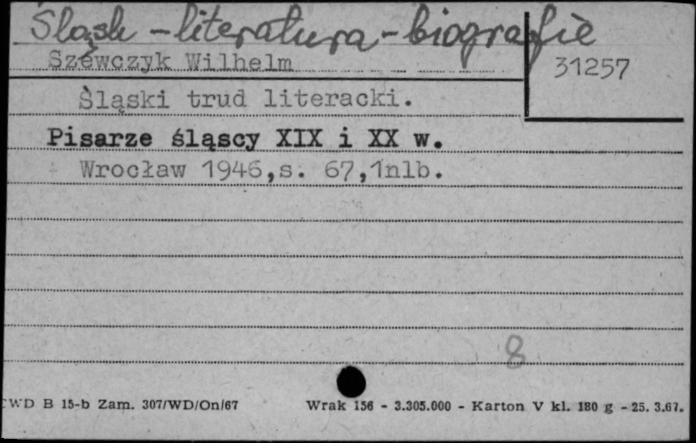 Śląsk - literatura - biografie
Szewczyk Wilhelm
31257
Śląski trud literacki.
Pisarze śląscy XIX i XX w.
Wrocław 1946,s. 67,1nlb.
8
CWD B 15-b Zam. 307/WD/On/67 Wrak 156 - 3.305.000 - Karton V kl. 180 g - 25. 3.67.